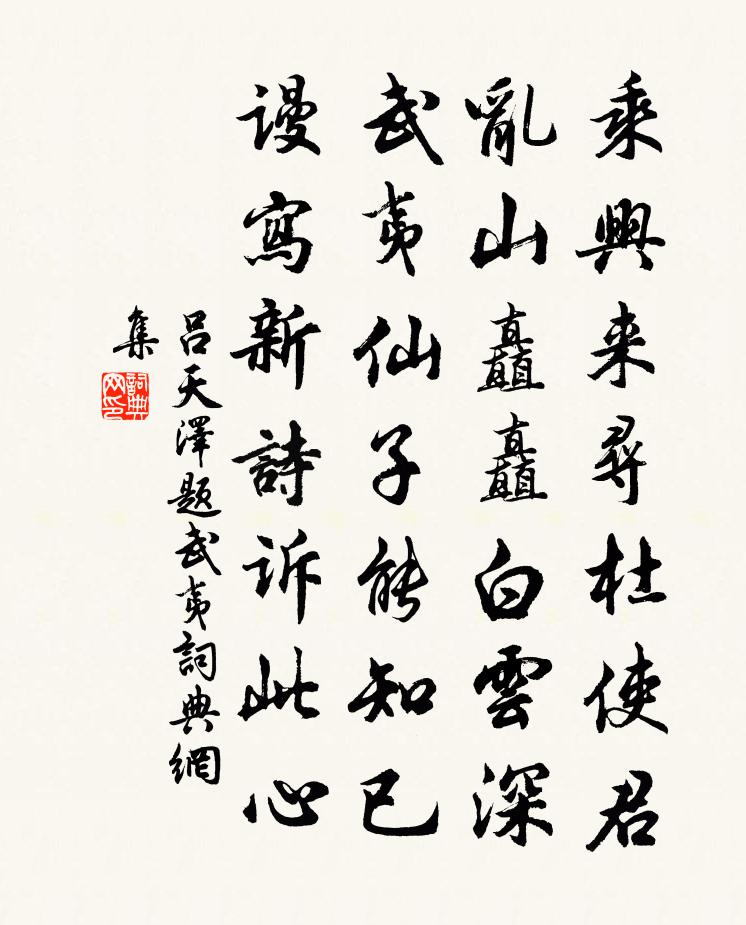 乘興来尋杜使君
亂山矗矗白雲深
武夷仙子能知已
谩寫新詩诉此心
呂天澤题武夷詞典網
集
詞典
网印